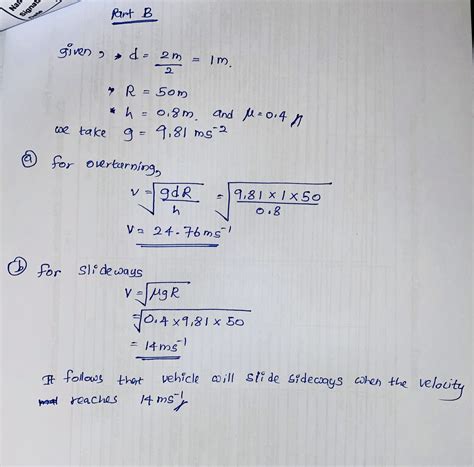 Nam
Signatu
Part B
given, * d = 2m/2 = 1m.
* R = 50m
* h = 0.8m. and μ = 0.4
we take g = 9.81 ms⁻²
(a) for overturning,
V = √(gdR/h) = √(9.81 × 1 × 50/0.8)
V = 24.76 ms⁻¹
(b) for slideways
V = √μgR
= √0.4 × 9.81 × 50
= 14 ms⁻¹
It follows that vehicle will slide sideways when the velocity
reaches 14 ms⁻¹